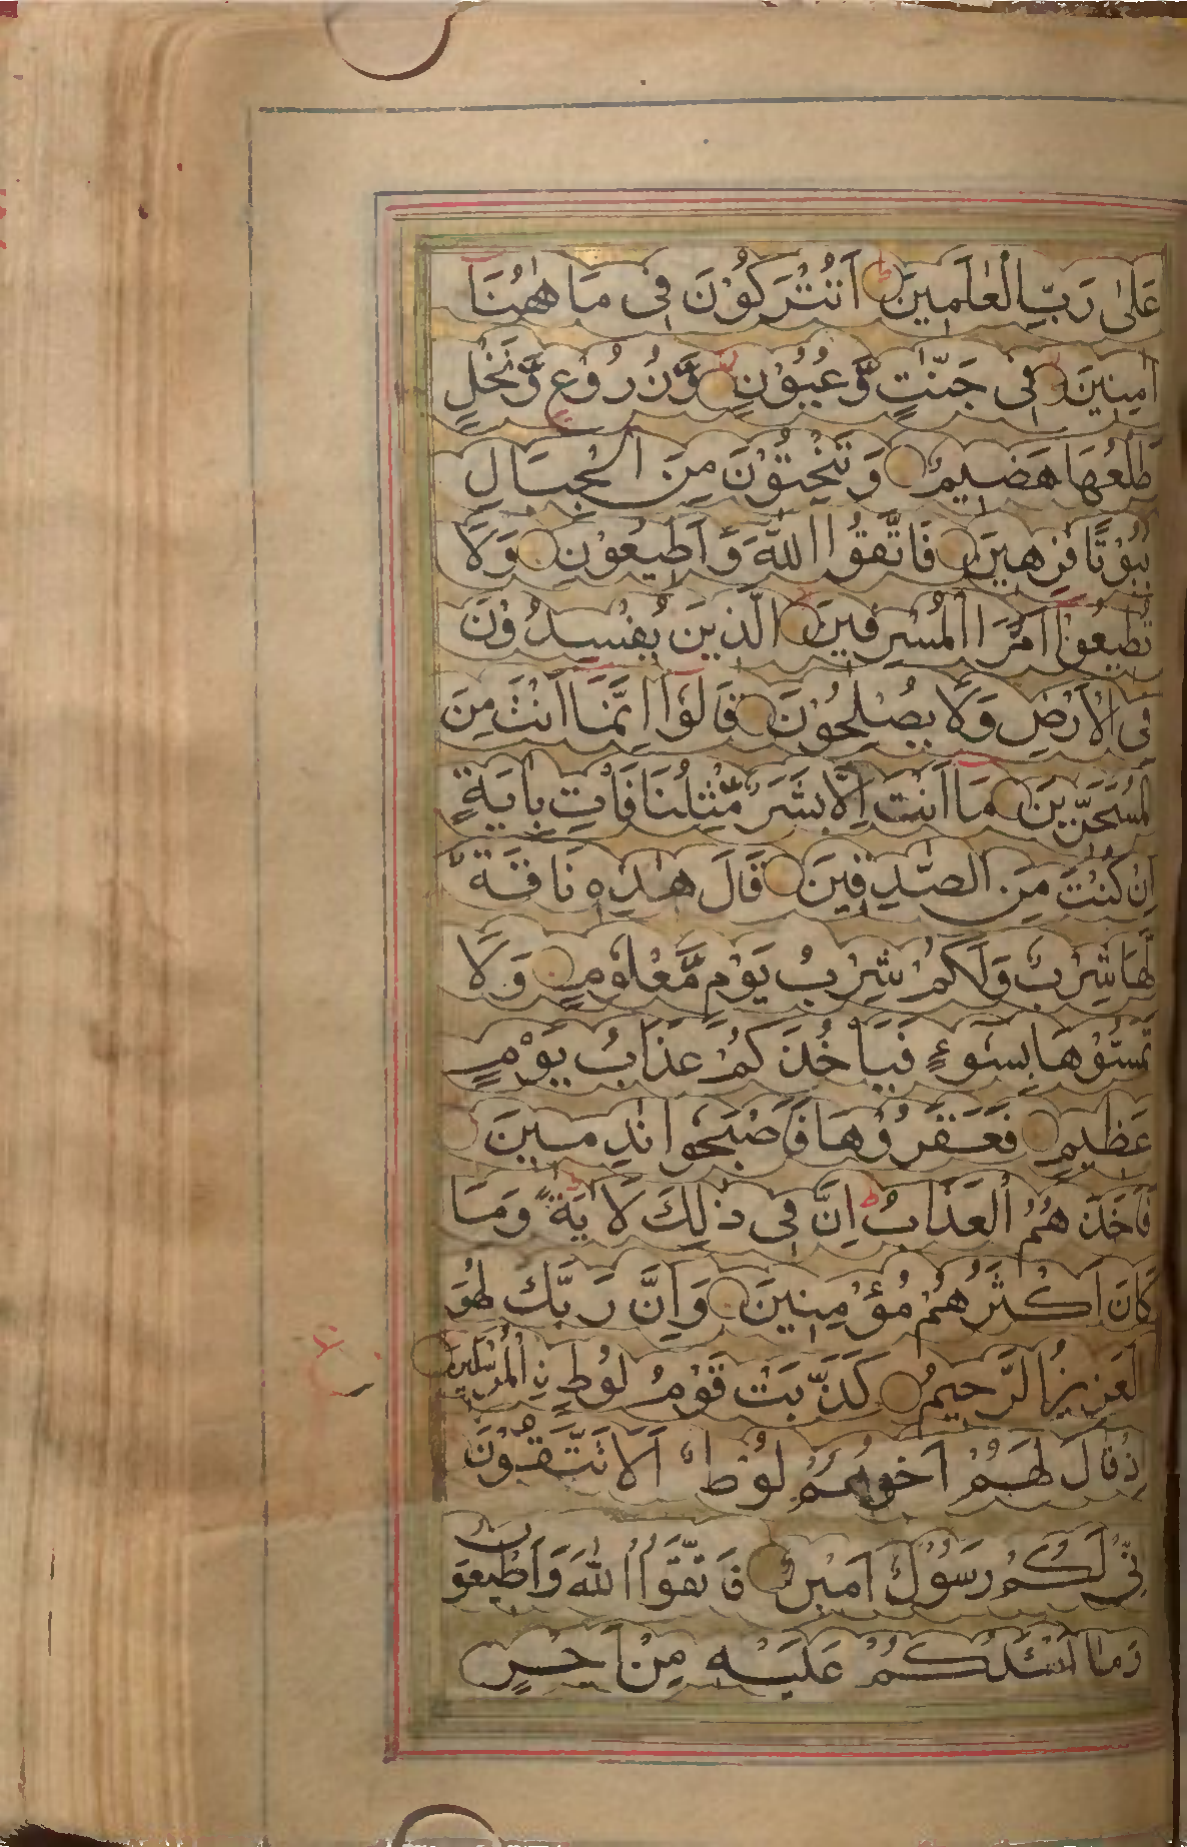 عَلٰى رَبِّ الْعٰلَمِينَ اَتُتْرَكُوْنَ فِى مَا هٰهُنَآ
اٰمِنِينَ فِى جَنّٰتٍ وَّعُيُوْنٍ وَّزُرُوْعٍ وَّنَخْلٍ
طَلْعُهَا هَضِيمٌ وَتَنْحِتُوْنَ مِنَ الْجِبَالِ
بُيُوْتًا فٰرِهِينَ فَاتَّقُوا اللّٰهَ وَاَطِيعُوْنِ وَلَا
تُطِيعُوْٓا اَمْرَ الْمُسْرِفِينَ الَّذِينَ يُفْسِدُوْنَ
فِى الْاَرْضِ وَلَا يُصْلِحُوْنَ قَالُوْٓا اِنَّمَآ اَنْتَ مِنَ
الْمُسَحَّرِينَ مَآ اَنْتَ اِلَّا بَشَرٌ مِّثْلُنَا فَاْتِ بِاٰيَةٍ
اِنْ كُنْتَ مِنَ الصّٰدِقِينَ قَالَ هٰذِهٖ نَاقَةٌ
لَّهَا شِرْبٌ وَلَكُمْ شِرْبُ يَوْمٍ مَّعْلُوْمٍ وَلَا
تَمَسُّوْهَا بِسُوْٓءٍ فَيَاْخُذَكُمْ عَذَابُ يَوْمٍ
عَظِيمٍ فَعَقَرُوْهَا فَاَصْبَحُوْا نٰدِمِينَ
فَاَخَذَهُمُ الْعَذَابُ ط اِنَّ فِى ذٰلِكَ لَاٰيَةً وَمَا
كَانَ اَكْثَرُهُمْ مُؤْمِنِينَ وَاِنَّ رَبَّكَ لَهُوَ
الْعَزِيزُ الرَّحِيمُ كَذَّبَتْ قَوْمُ لُوْطٍ نِ الْمُرْسَلِينَ
اِذْ قَالَ لَهُمْ اَخُوْهُمْ لُوْطٌ اَلَا تَتَّقُوْنَ
اِنِّى لَكُمْ رَسُوْلٌ اَمِينٌ فَاتَّقُوا اللّٰهَ وَاَطِيعُوْنِ
وَمَآ اَسْئَلُكُمْ عَلَيْهِ مِنْ اَجْرٍ
ع